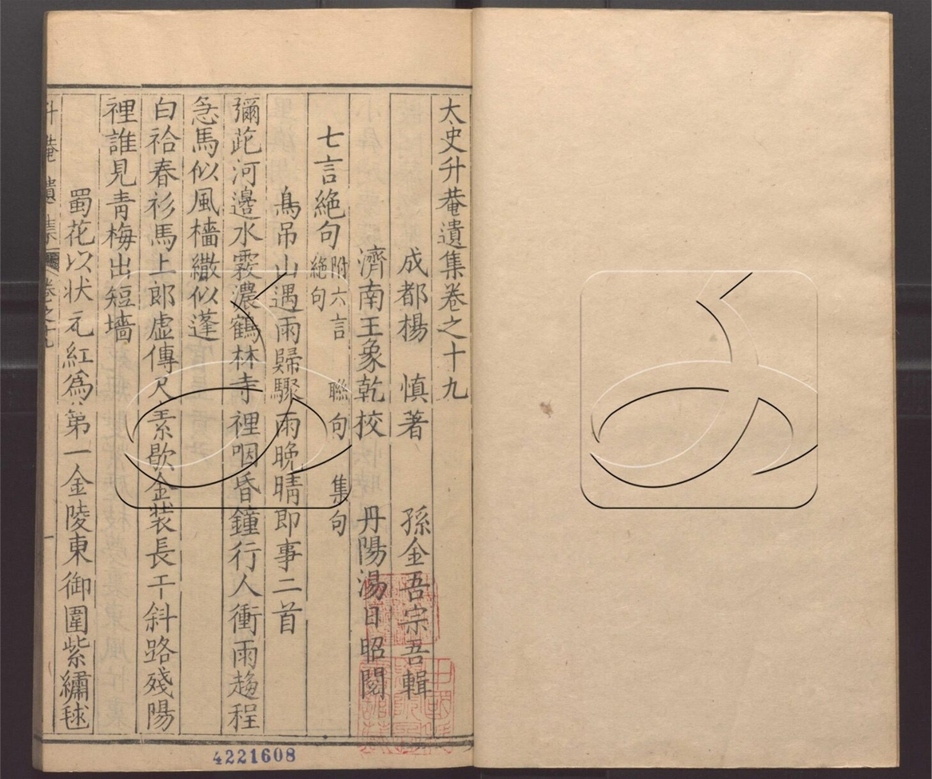 太史升菴遺集卷之十九
成都楊 慎著 孫金吾宗吾輯
濟南王象乾校 丹陽湯日昭閱
七言絶句 附六言絶句 聯句 集句
鳥吊山遇雨歸驟雨晚晴即事二首
彌苴河邊水霧濃鶴林寺裡咽昏鐘行人衝雨趨程
急馬似風檣繖似蓬
白袷春衫馬上郎虛傳尺素歇金裝長干斜路殘陽
裡誰見青梅出短墻
蜀花以状元紅爲第一金陵東御園紫繡毬
升菴遺集 卷之十九 一
4221608